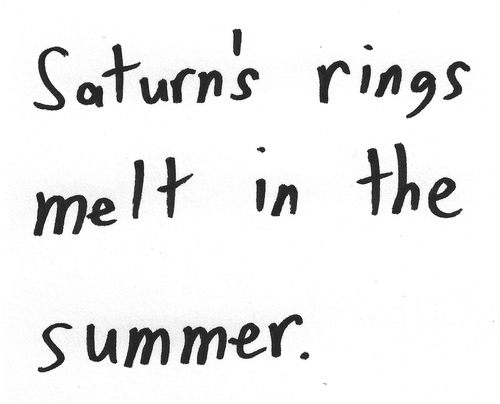 Saturn's rings
melt in the
summer.